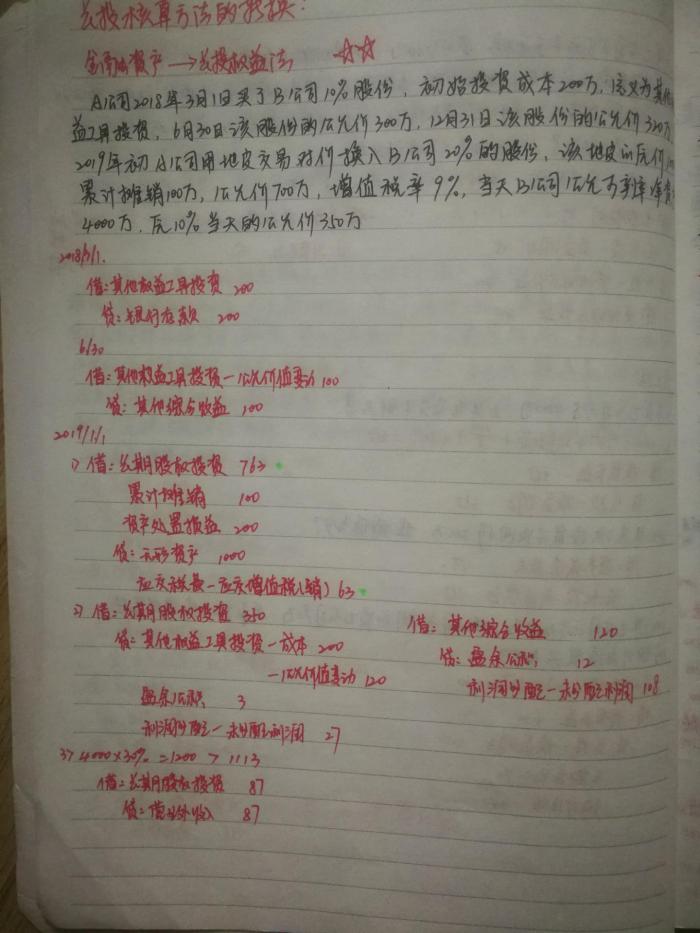 长投核算方法的转换:
金融资产→长投权益法 ☆☆
A公司2018年3月1日买了B公司10%股份，初始投资成本200万，定义为其他
益工具投资，6月30日该股份的公允价300万，12月31日该股份的公允价320万
2019年初A公司用地皮交易对价换入B公司20%的股份，该地皮的原价
累计摊销100万，公允价700万，增值税率9%，当天B公司公允可辨净资
4000万，原10%当天的公允价350万
2018/3/1.
借:其他权益工具投资 200
贷:银行存款 200
6/30
借:其他权益工具投资—公允价值变动 100
贷:其他综合收益 100
2019/1/1
1) 借:长期股权投资 763
累计摊销 100
资产处置损益 200
贷:无形资产 1000
应交税费—应交增值税(销) 63
2) 借:长期股权投资 350
贷:其他权益工具投资—成本 200
—公允价值变动 120
盈余公积 3
利润分配—未分配利润 27
借:其他综合收益 120
贷:盈余公积 12
利润分配—未分配利润 108
3) 4000×30% =1200 > 1113
借:长期股权投资 87
贷:营业外收入 87